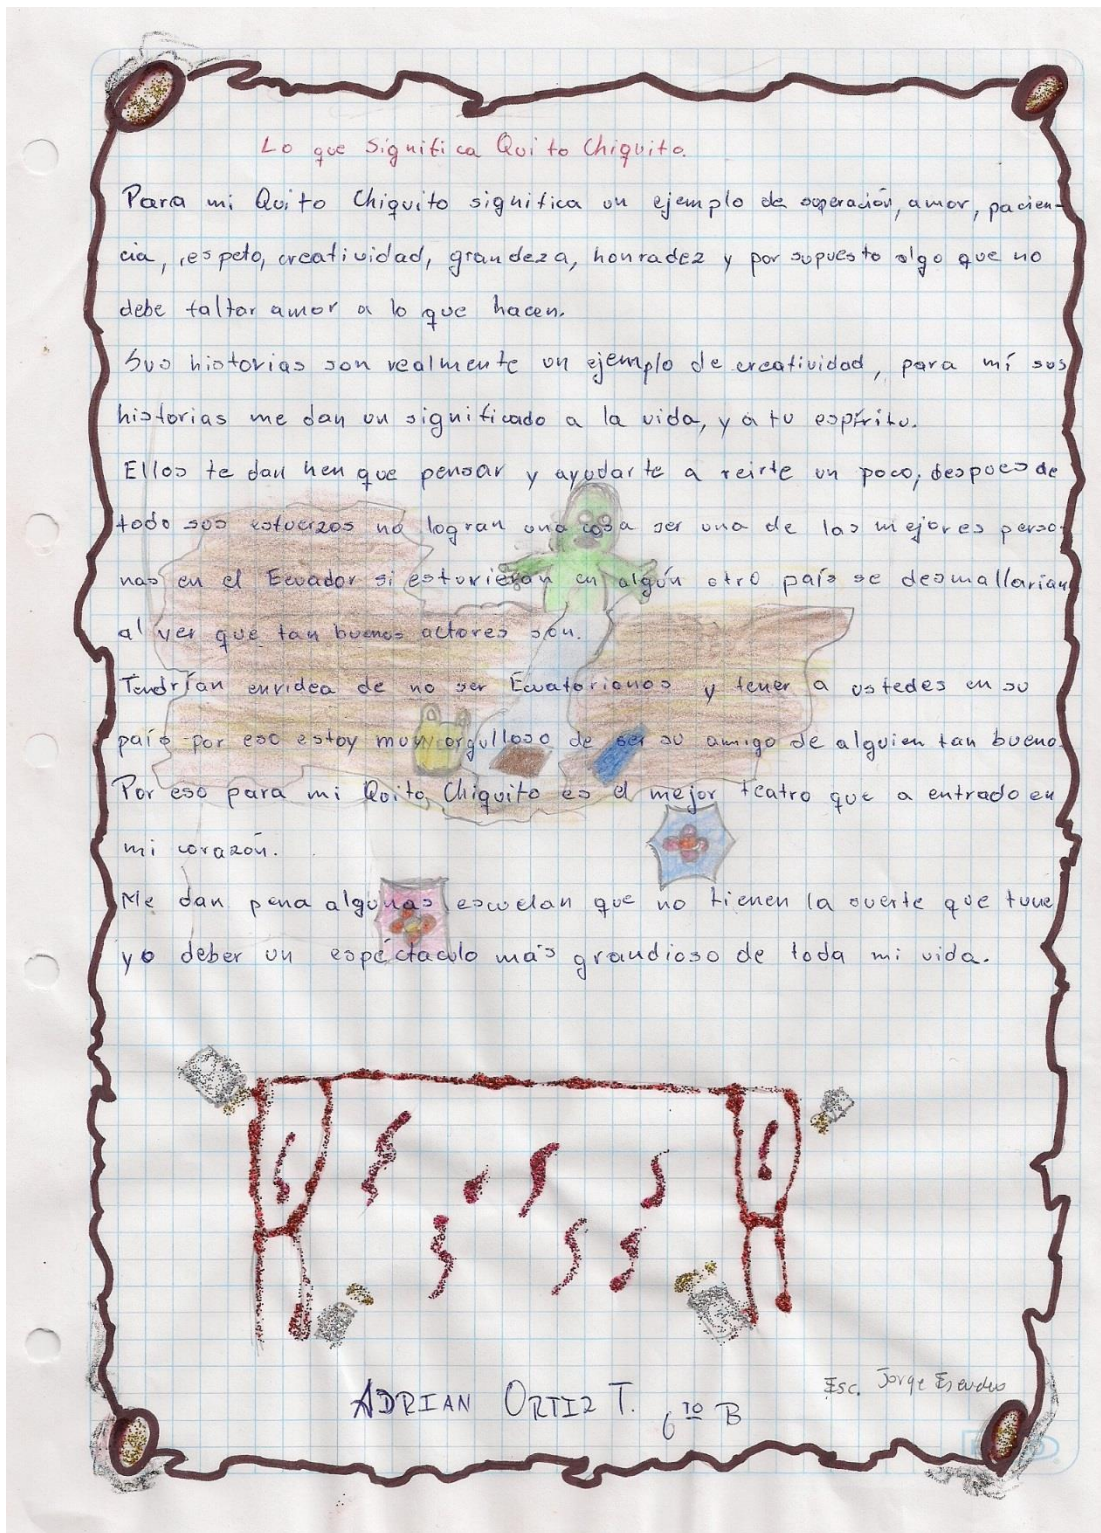 Lo que Significa Quito Chiquito.
Para mi Quito Chiquito significa un ejemplo de superación, amor, pacien-
cia, respeto, creatividad, grandeza, honradez y por supuesto algo que no
debe faltar amor a lo que hacen.
Sus historias son realmente un ejemplo de creatividad, para mí sus
historias me dan un significado a la vida, y a tu espíritu.
Ellos te dan hen que pensar y ayudarte a reirte un poco, despues de
todo sus esfuerzos no logran una cosa ser una de las mejores perso-
nas en el Ecuador si estuvieran en algún otro país se desmallarian
al ver que tan buenos actores son.
Tendrían envidea de no ser Ecuatorianos y tener a ustedes en su
país por eso estoy muy orgulloso de ser su amigo de alguien tan bueno.
Por eso para mi Quito Chiquito es el mejor teatro que a entrado en
mi corazón.
Me dan pena algunas escuelan que no tienen la suerte que tuve
yo deber un espéctaculo más grandioso de toda mi vida.
ADRIAN ORTIZ T. 6to B
Esc. Jorge Escudero